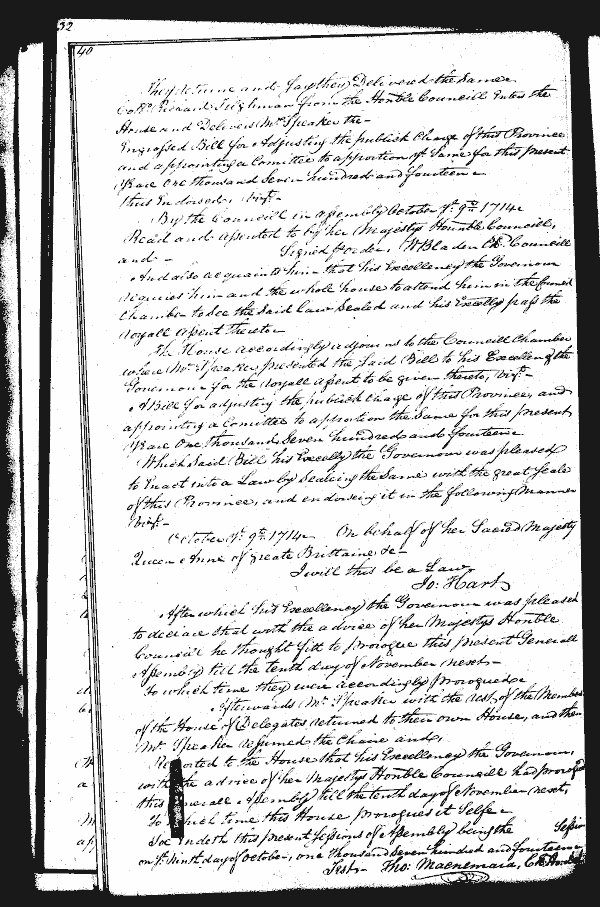 32
40
They returne and say they Delivered the Same
Coll.o Richard Tilghman from the Honble Councill Enters the
House and Delivers Mr. Speaker the
Engrossed Bill for Adjusting the publick Charge of this Province
and appointing a Comittee to apportion ye Same for this present
Yeare One thousand Seven hundred and fourteen
thus Endorsed, vizt.
By the Councill in Assembly October ye 9th 1714
Read and assented to by her Majestys Honble Councill,
and - Signed p order, W Bladen Cl. Councill
And also acquaints him that his Excellency the Governour
requires him and the whole house to attend him in the Councill
Chamber to See the Said Law Sealed and his Excelly pass the
royall assent thereto
The House accordingly adjourns to the Councill Chamber
where Mr. Speaker presented the Said Bill to his Excellency the
Governour for the royall assent to be given thereto, vizt.
A Bill for adjusting the publick Charge of this Province, and
appointing a Comittee to apportion the Same for this present
Yeare One Thousand Seven hundred and fourteen
Which Said Bill his Excelly the Governour was pleased
to Enact into a Law by Sealing the Same with the great Seale
of this Province, and endorsing it in the following Manner
vizt.
October ye 9th 1714 On behalf of her Sacred Majesty
Queen Anne of greate Brittaine &c
I will this be a Law
Jo: Hart
After which his Excellency the Governour was pleased
to declare that with the advice of her Majestys Honble
Councill he thought fitt to prorogue this present Generall
Assembly till the tenth day of November next
To which time they were accordingly prorogued
Afterwards Mr. Speaker with the rest of the Members
of the House of Delegates returned to their own House, and then
Mr. Speaker assumed the Chaire and
Reported to the House that his Excellency the Governour,
with the advice of her Majestys Honble Councill had prorogued
this Generall Assembly till the tenth day of November next,
To which time this House prorogues it Selfe
Soe Endeth this present Sessions of Assembly being the Session
on ye Ninth day of October, one thousand Seven hundred and fourteene
Test Tho: Macnemara, Cl.